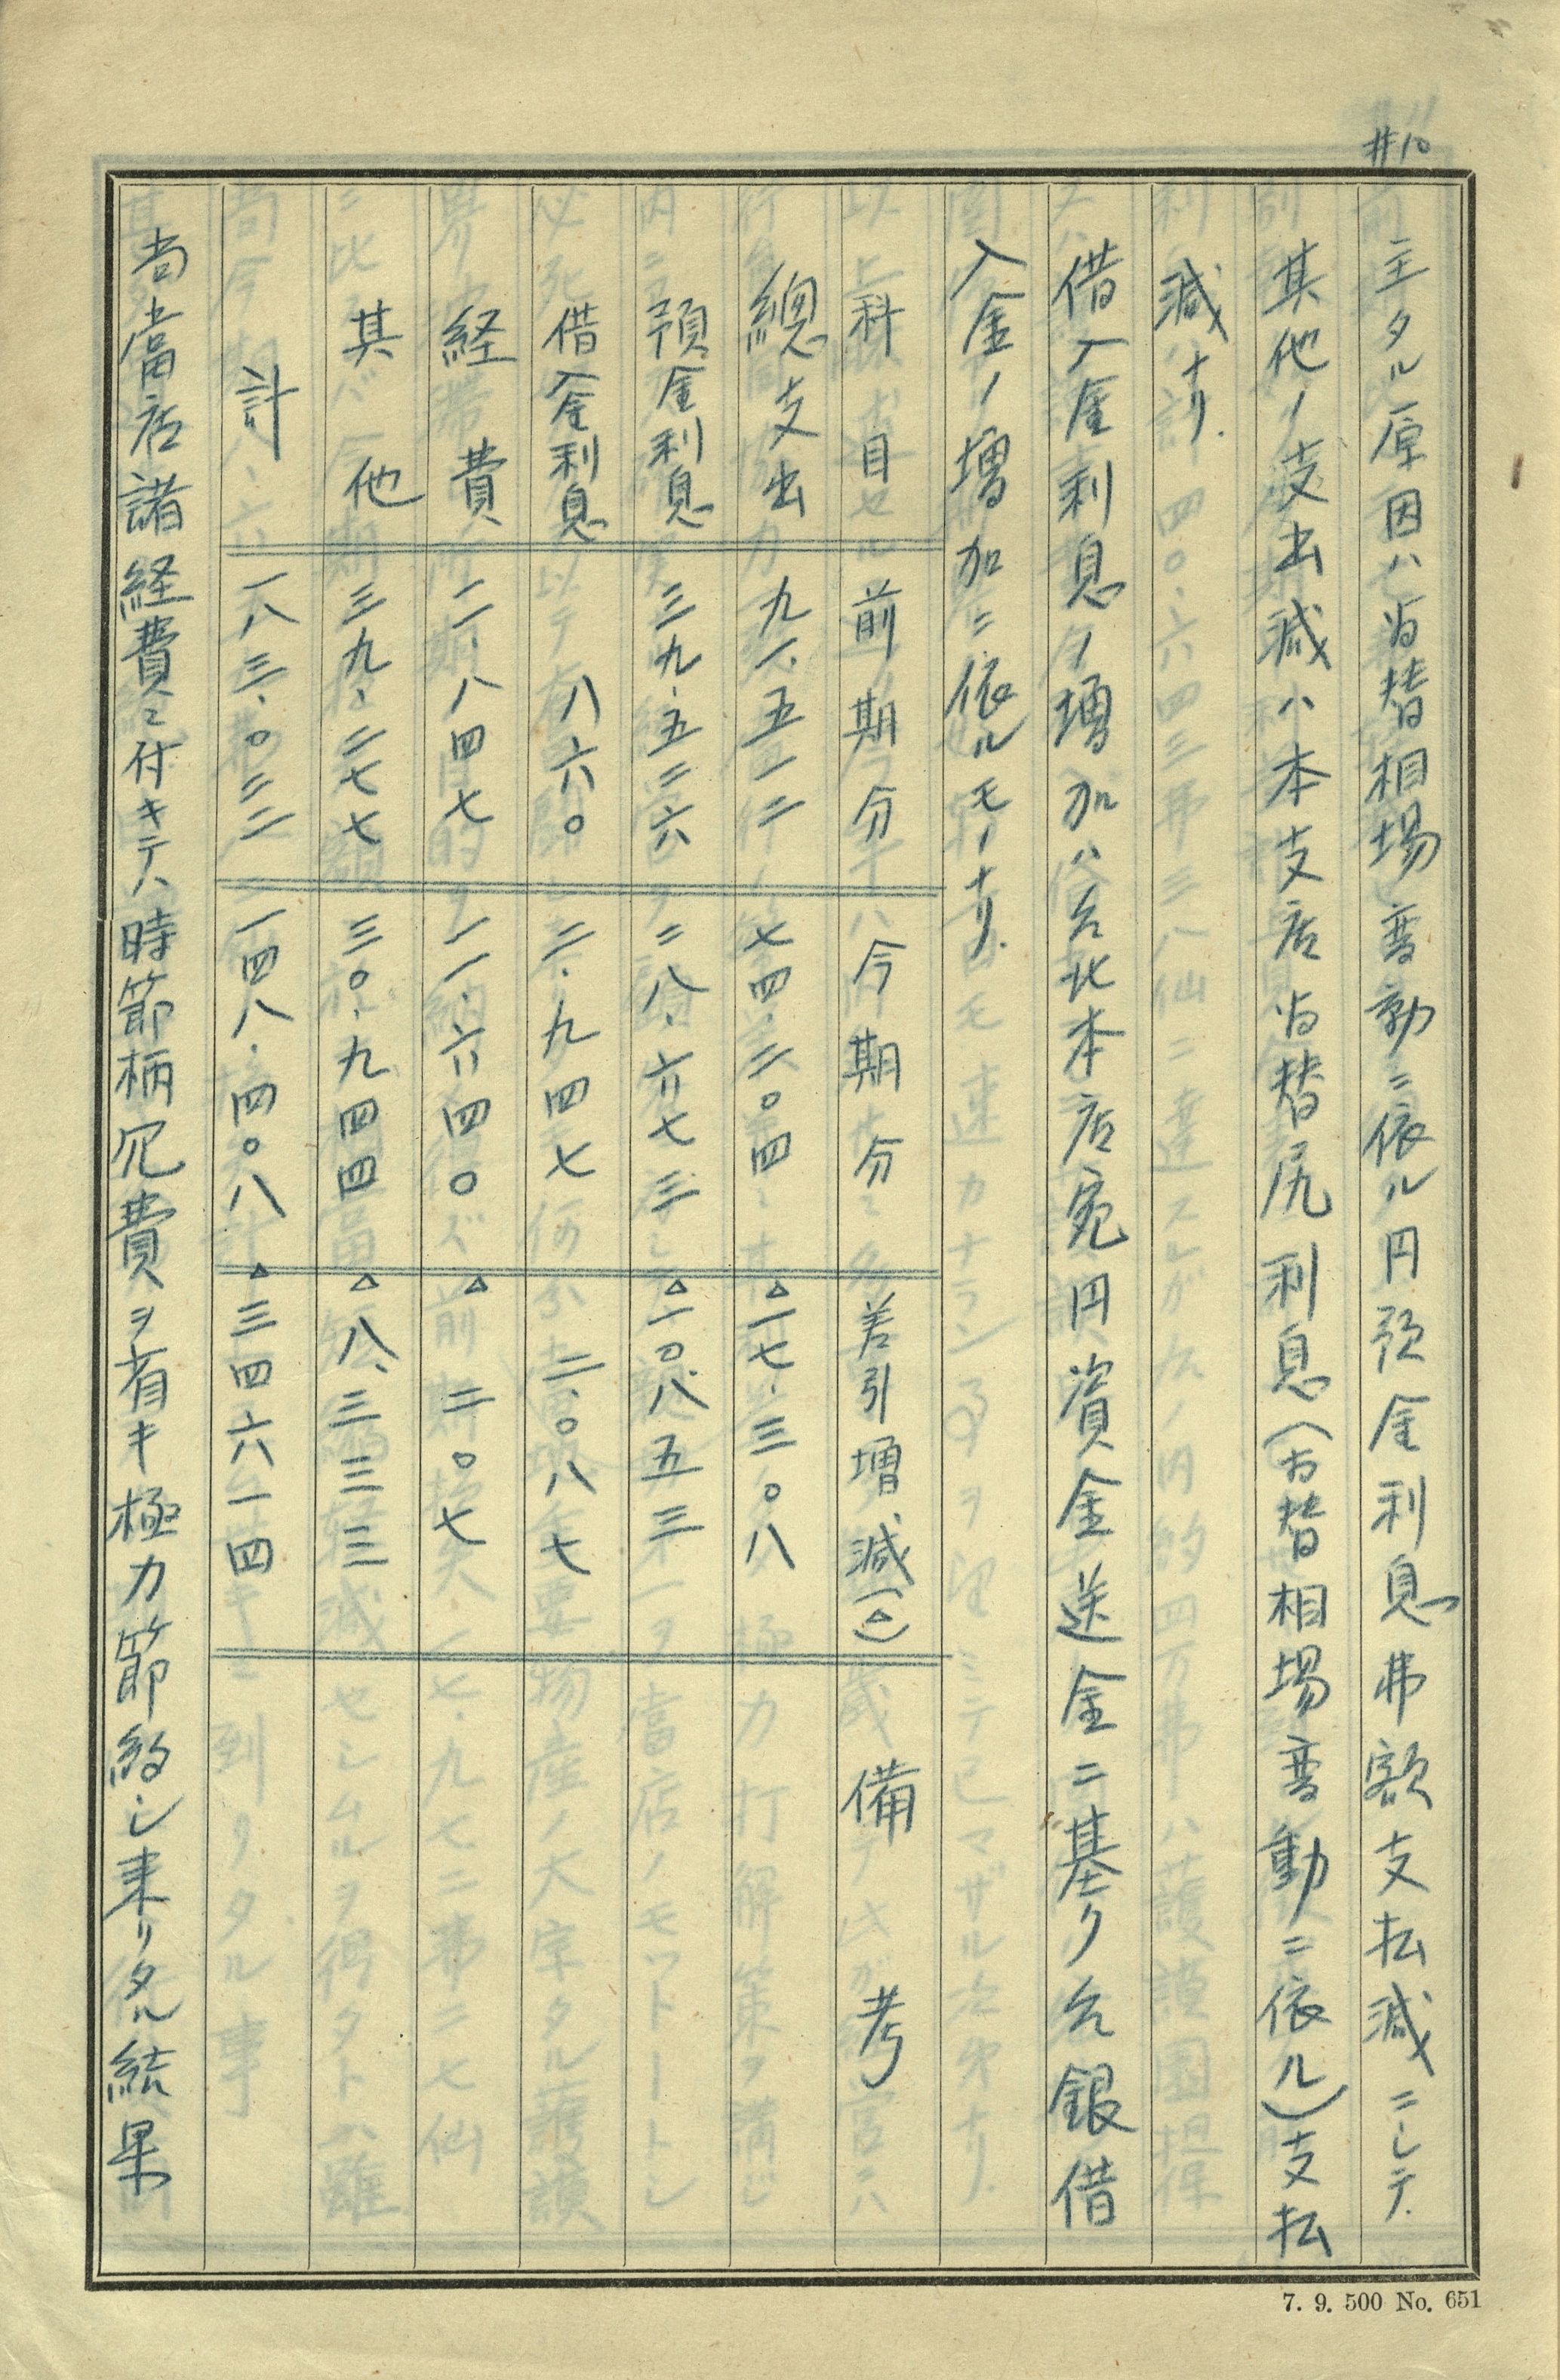 #10
主タル原因ハ為替相場変動ニ依ル円預金利息弗額支払減ニシテ.
其他ノ支出減ハ本支店為替尻利息(為替相場変動ニ依ル)支払
減ナリ.
借入金利息ノ増加ハ台北本店宛円資金送金ニ基ク台銀借
入金ノ増加ニ依ルモノナリ.
科目 前期分 今期分 差引増減(△) 備考
總支出 九一.五一二 七四.二〇四 △一七.三〇八
預金利息 三九.五二六 二八.六七三 △一〇.八五三
借入金利息 八六〇 二.九四七 二.〇八七
経費 一一.八四七 一一.六四〇 △二〇七
其他 三九.二七七 三〇.九四四 △八.三三三
計 一八三.〇二二 一四八.四〇八 △三四六一四
尚當店諸経費ニ付キテハ時節柄冗費ヲ省キ極力節約シ来リタル結果
7. 9. 500 No. 651